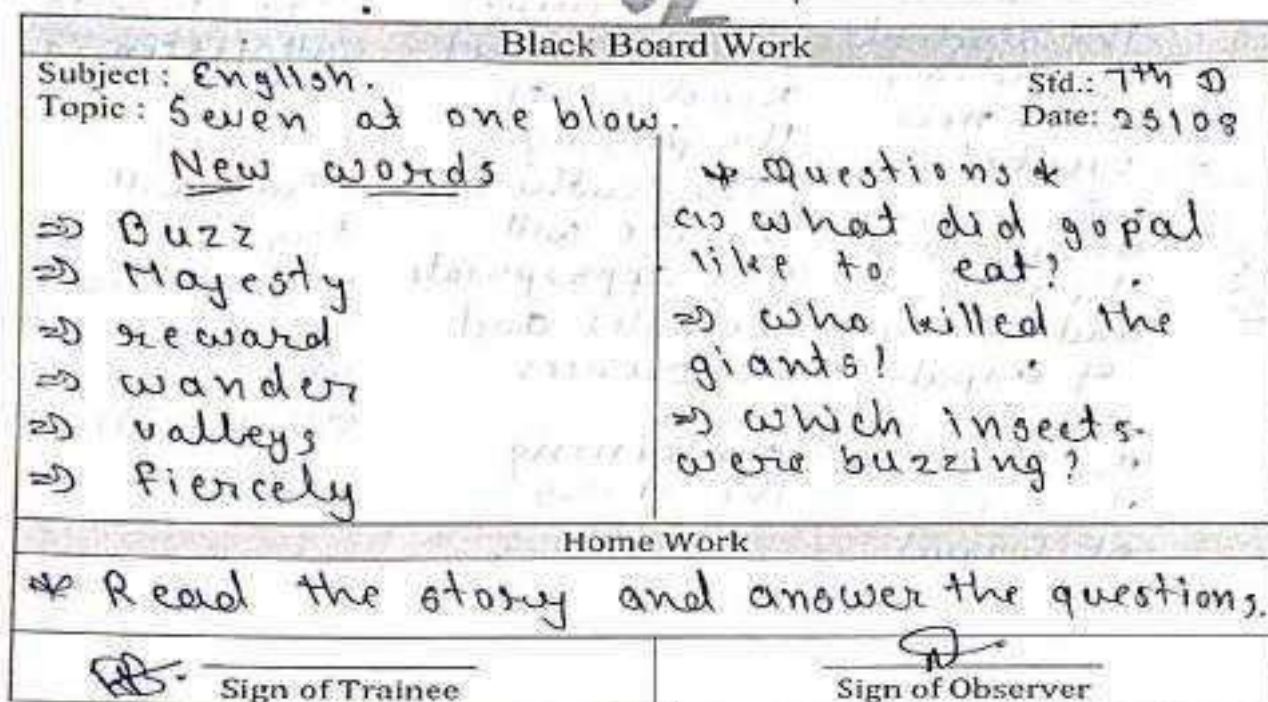 Black Board Work
Subject : English.
Std.: 7th D
Topic : Seven at one blow.
Date: 25108
New words
⇒ Buzz
⇒ Majesty
⇒ reward
⇒ wander
⇒ valleys
⇒ fiercely
* Questions *
⇒ what did gopal
like to eat?
⇒ who killed the
giants?
⇒ which insects
were buzzing?
Home Work
* Read the story and answer the questions.
Sign of Trainee
Sign of Observer